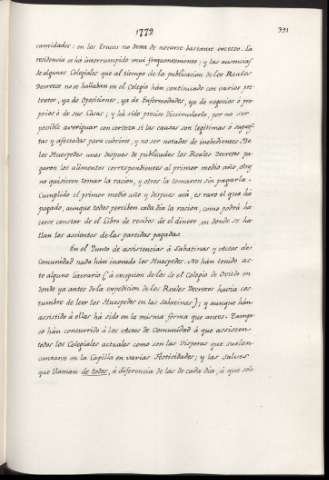 1779
331
cantidades: en los trucos no dexa de notarse bastante exceso. La
residencia se ha interrumpido mui frequentemente; y las ausencias
de algunos Colegiales que al tiempo de la publicacion de los Reales
Decretos no se hallaban en el Colegio han continuado con varios pre-
textos, ya de Oposiciones, ya de Enfermedades, ya de negocios ò pro-
prios ò de sus Casas; y hà sido preciso disimularlo, por no ser
posible averiguar con certeza si las causas son legitimas ò supues-
tas y afectadas para cubrirse, y no ser notados de inobedientes. De
los Huespedes unos despues de publicados los Reales Decretos pa-
garon los alimentos correspondientes al primer medio año, otros
no quisieron tomar la racion, y otros la tomaron sin pagarla.
Cumplido el primer medio año y despues acà, es raro el que ha
pagado, aunque todos perciben cada dia la racion, como podrà ha-
cerse constar de el Libro de recibos de el dinero, en donde se ha-
llan los asientos de las partidas pagadas.
En el Punto de assistencias à Sabatinas y actos de
Comunidad nada hán inovado los Huespedes. No hán tenido ac-
to alguno literario (à excepcion de los de el Colegio de Oviedo en
donde ya antes de la expedicion de los Reales Decretos havia cos-
tumbre de leer los Huespedes en las Sabatinas); y aunque hán
assistido à ellas hà sido en la misma forma que antes. Tampo-
co hán concurrido à los actos de Comunidad à que assisten
todos los Colegiales actuales como son las Visperas que suelen
cantarse en la Capilla en varias Festividades; y las Salves
que llaman de todos, à diferencia de las de cada dia, à que solo